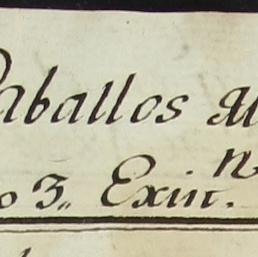 Caballos
o 3,, Exin.
n